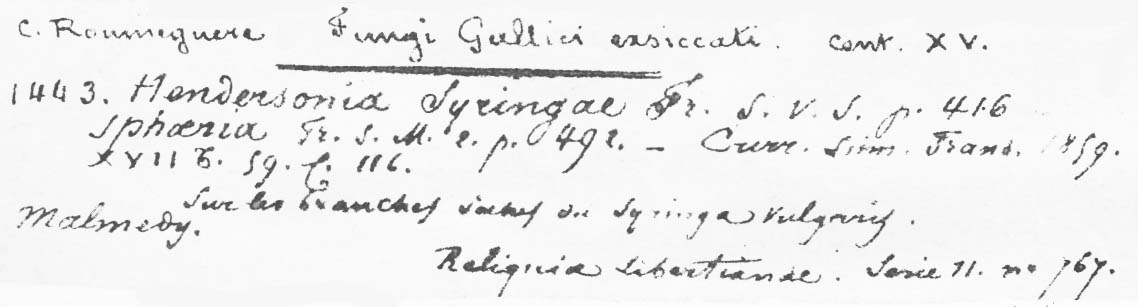 C. Roumeguere Fungi Gallici exsiccati. Cent. XV.
1443. Hendersonia Syringae Fr. S. V. S. p. 416
Sphæria Fr. S. M. 2. p. 492. – Curr. Linn. Trans. 1859.
XVII t. 59. f. 116.
Sur les branches sèches du Syringa vulgaris.
Malmedy.
Reliquiæ Libertianae. Serie 11. no 767.